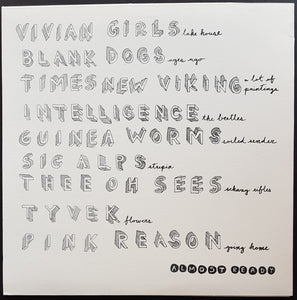 VIVIAN GIRLS lake house
BLANK DOGS ages ago
TIMES NEW VIKING a lot of paintings
INTELLIGENCE the beetles
GUINEA WORMS soiled sender
SIC ALPS
THEE OH SEES schwag rifles
TYVEK flowers
PINK REASON going home
ALMOST READY